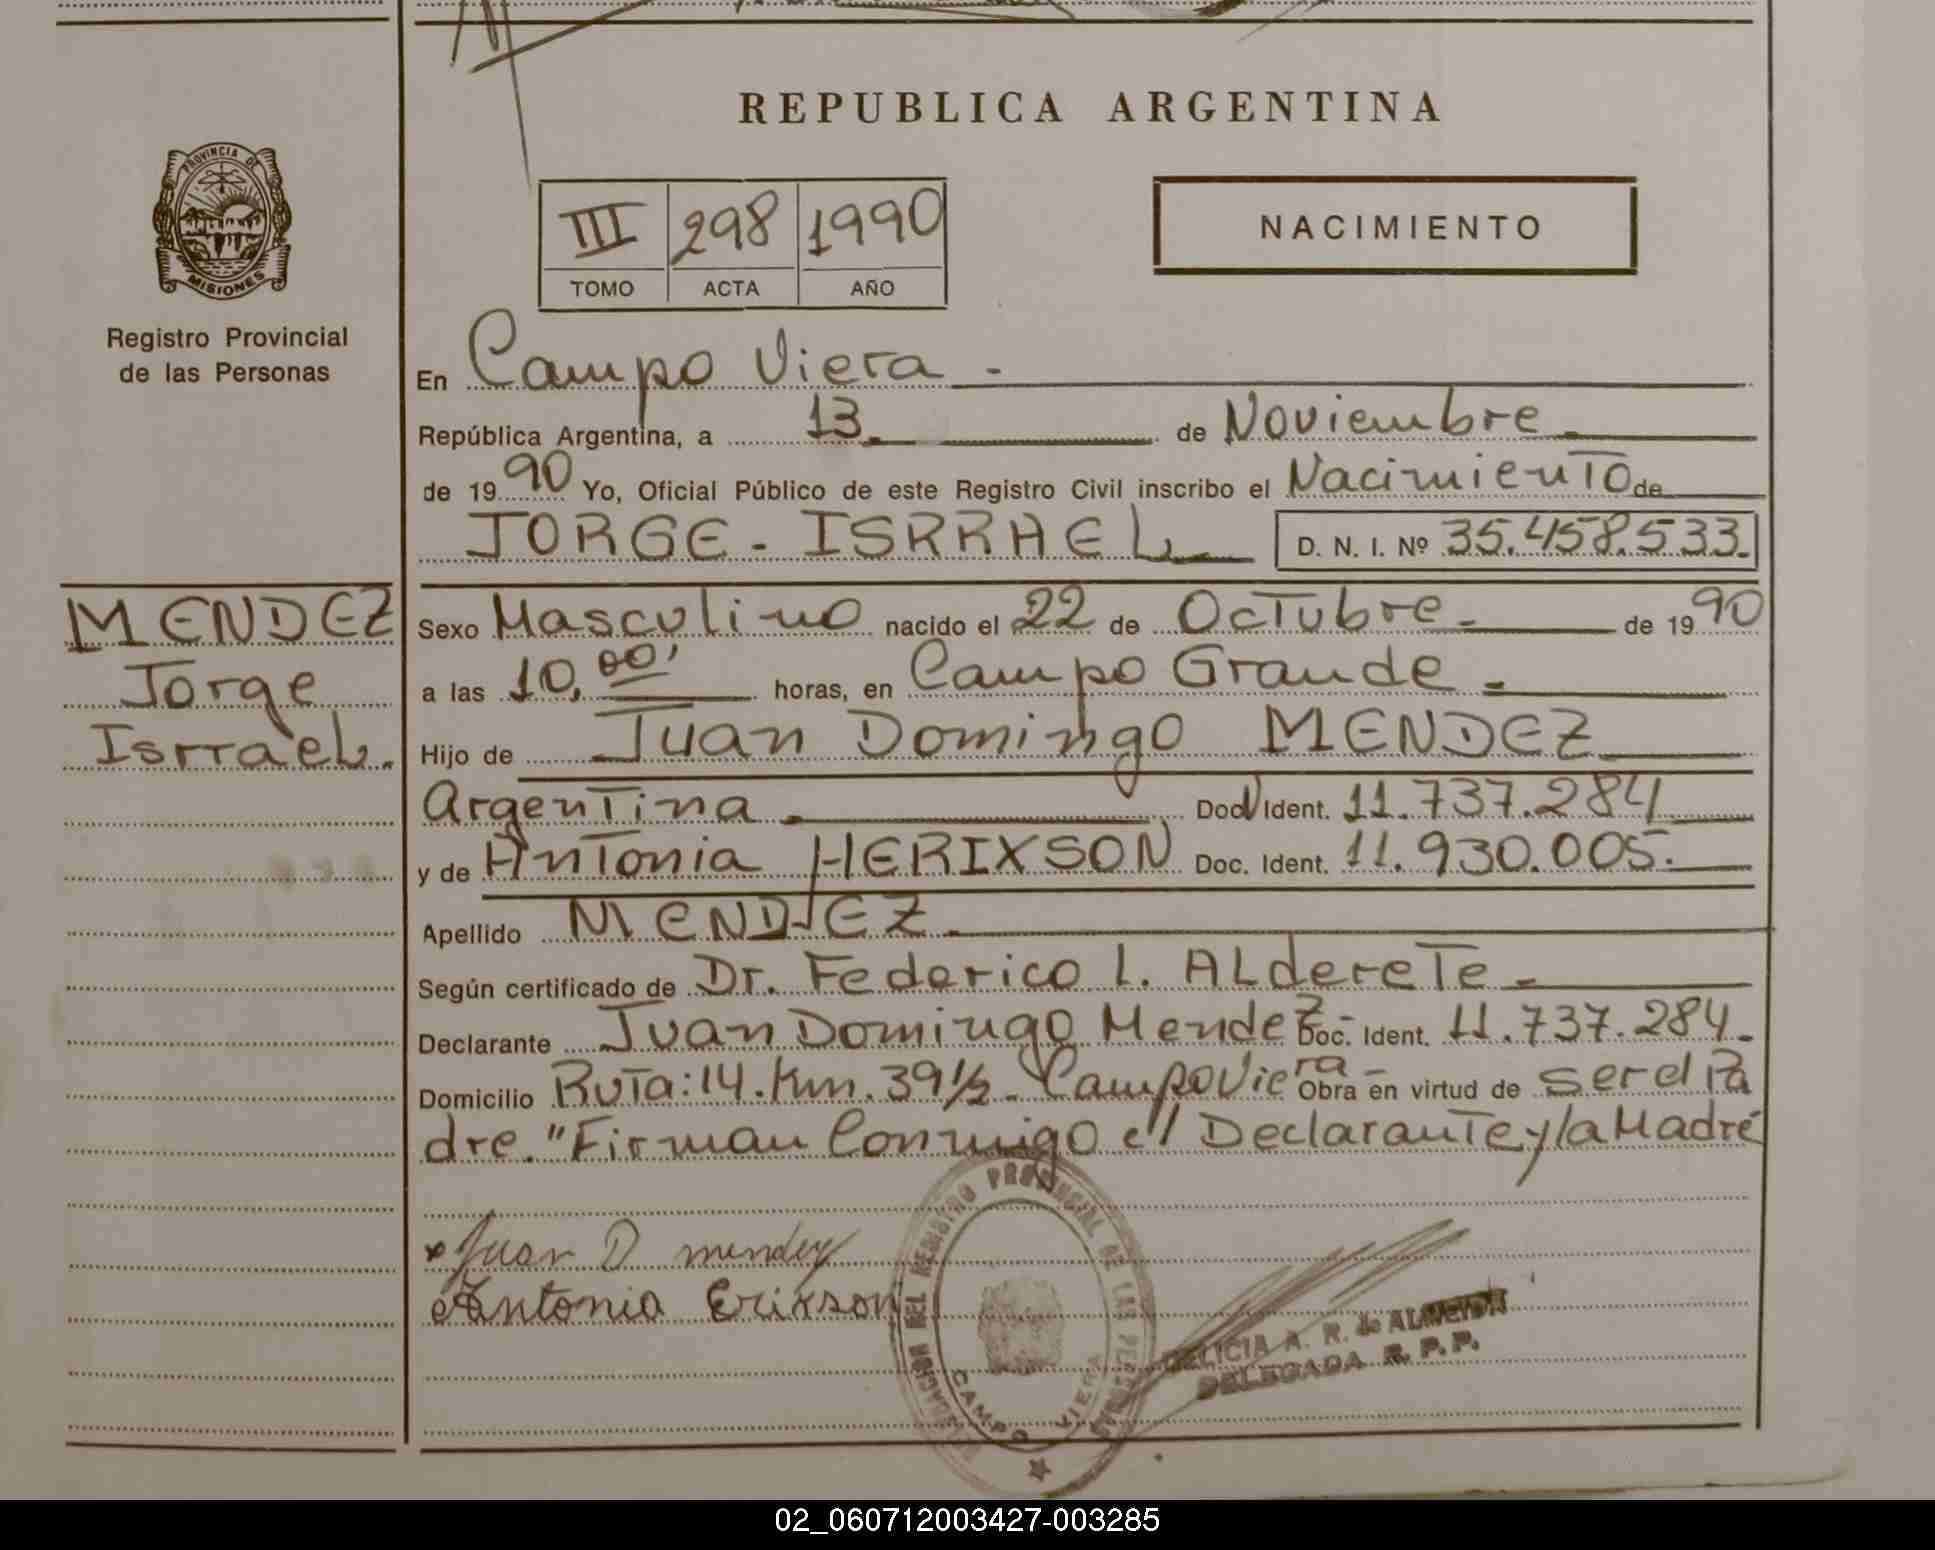 REPUBLICA ARGENTINA
PROVINCIA DE
MISIONES
Registro Provincial
de las Personas
III 298 1990
TOMO ACTA AÑO
NACIMIENTO
En Campo Viera -
República Argentina, a 13 de Noviembre
de 1990 Yo, Oficial Público de este Registro Civil inscribo el Nacimiento de
JORGE - ISRRAEL D. N. I. Nº 35.458.533.
MENDEZ
Jorge
Isrrael.
Sexo Masculino nacido el 22 de Octubre - de 1990
a las 10,00' horas, en Campo Grande -
Hijo de Juan Domingo MENDEZ
Argentina Doc. Ident. 11.737.284
y de Antonia HERIXSON Doc. Ident. 11.930.005.
Apellido MENDEZ
Según certificado de Dr. Federico L. ALdereTe -
Declarante Juan Domingo Mendez - Doc. Ident. 11.737.284 -
Domicilio Ruta: 14. Km. 39 1/2 - Campo Viera - Obra en virtud de ser el Pa
dre. "Firman Conmigo el Declarante y la Madre
Juan D mendez
Antonia Erixson
DELEGACION DEL REGISTRO PROVINCIAL DE LAS PERSONAS
CAMPO VIERA
A. R. de ALMEIDA
DELEGADA R. P. P.
02_060712003427-003285